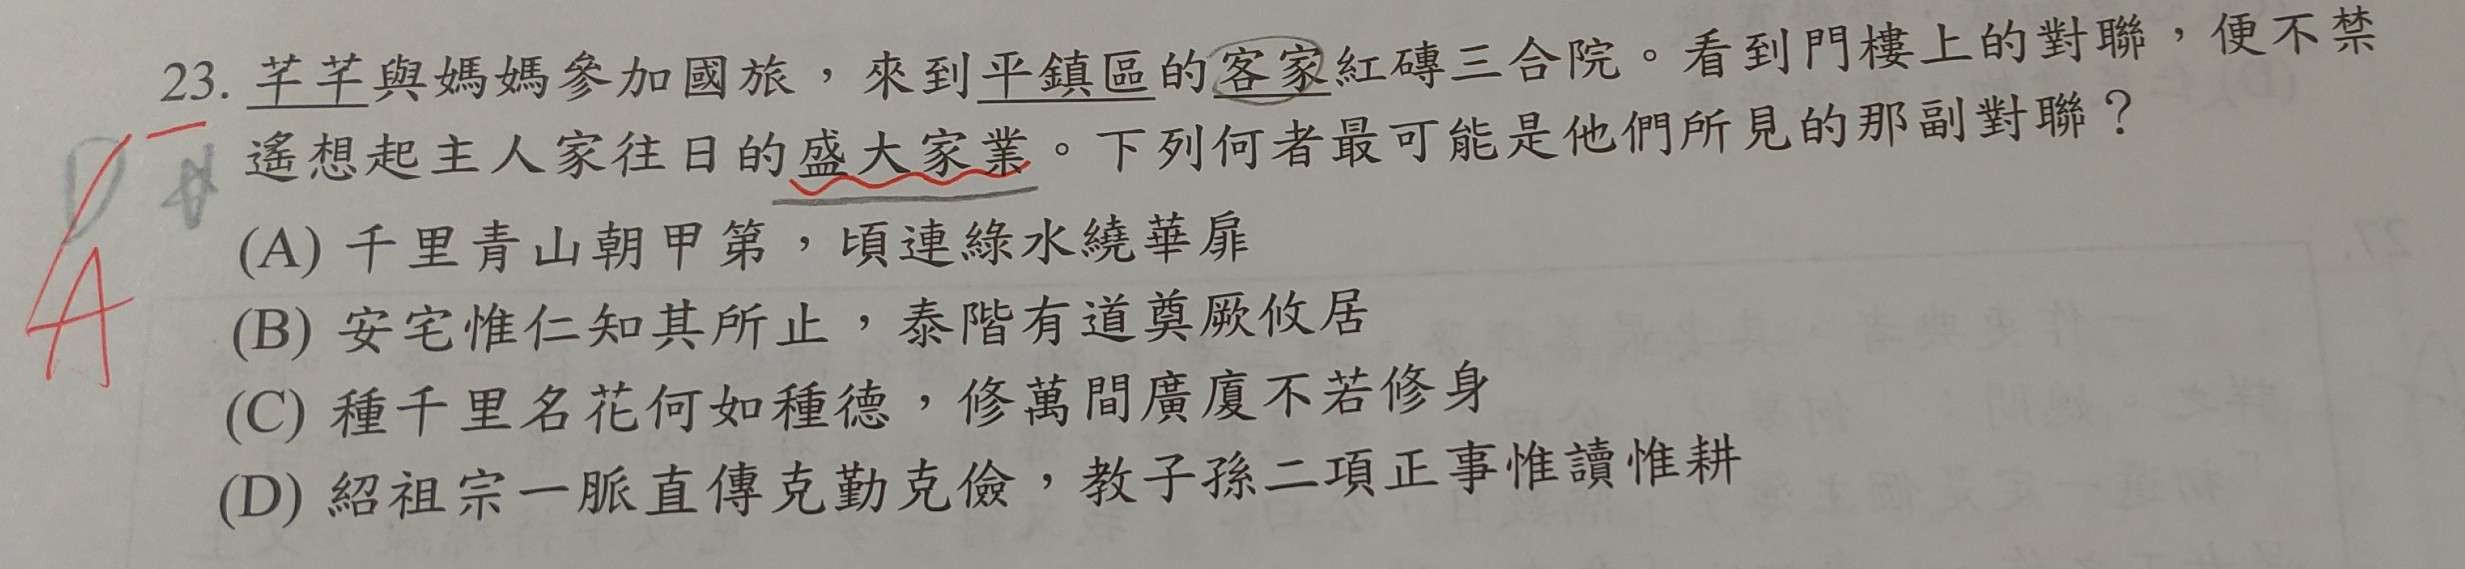 23. 芊芊與媽媽參加國旅，來到平鎮區的客家紅磚三合院。看到門樓上的對聯，便不禁
遙想起主人家往日的盛大家業。下列何者最可能是他們所見的那副對聯？
D A
A
(A) 千里青山朝甲第，頃連綠水繞華扉
(B) 安宅惟仁知其所止，泰階有道奠厥攸居
(C) 種千里名花何如種德，修萬間廣廈不若修身
(D) 紹祖宗一脈直傳克勤克儉，教子孫二項正事惟讀惟耕